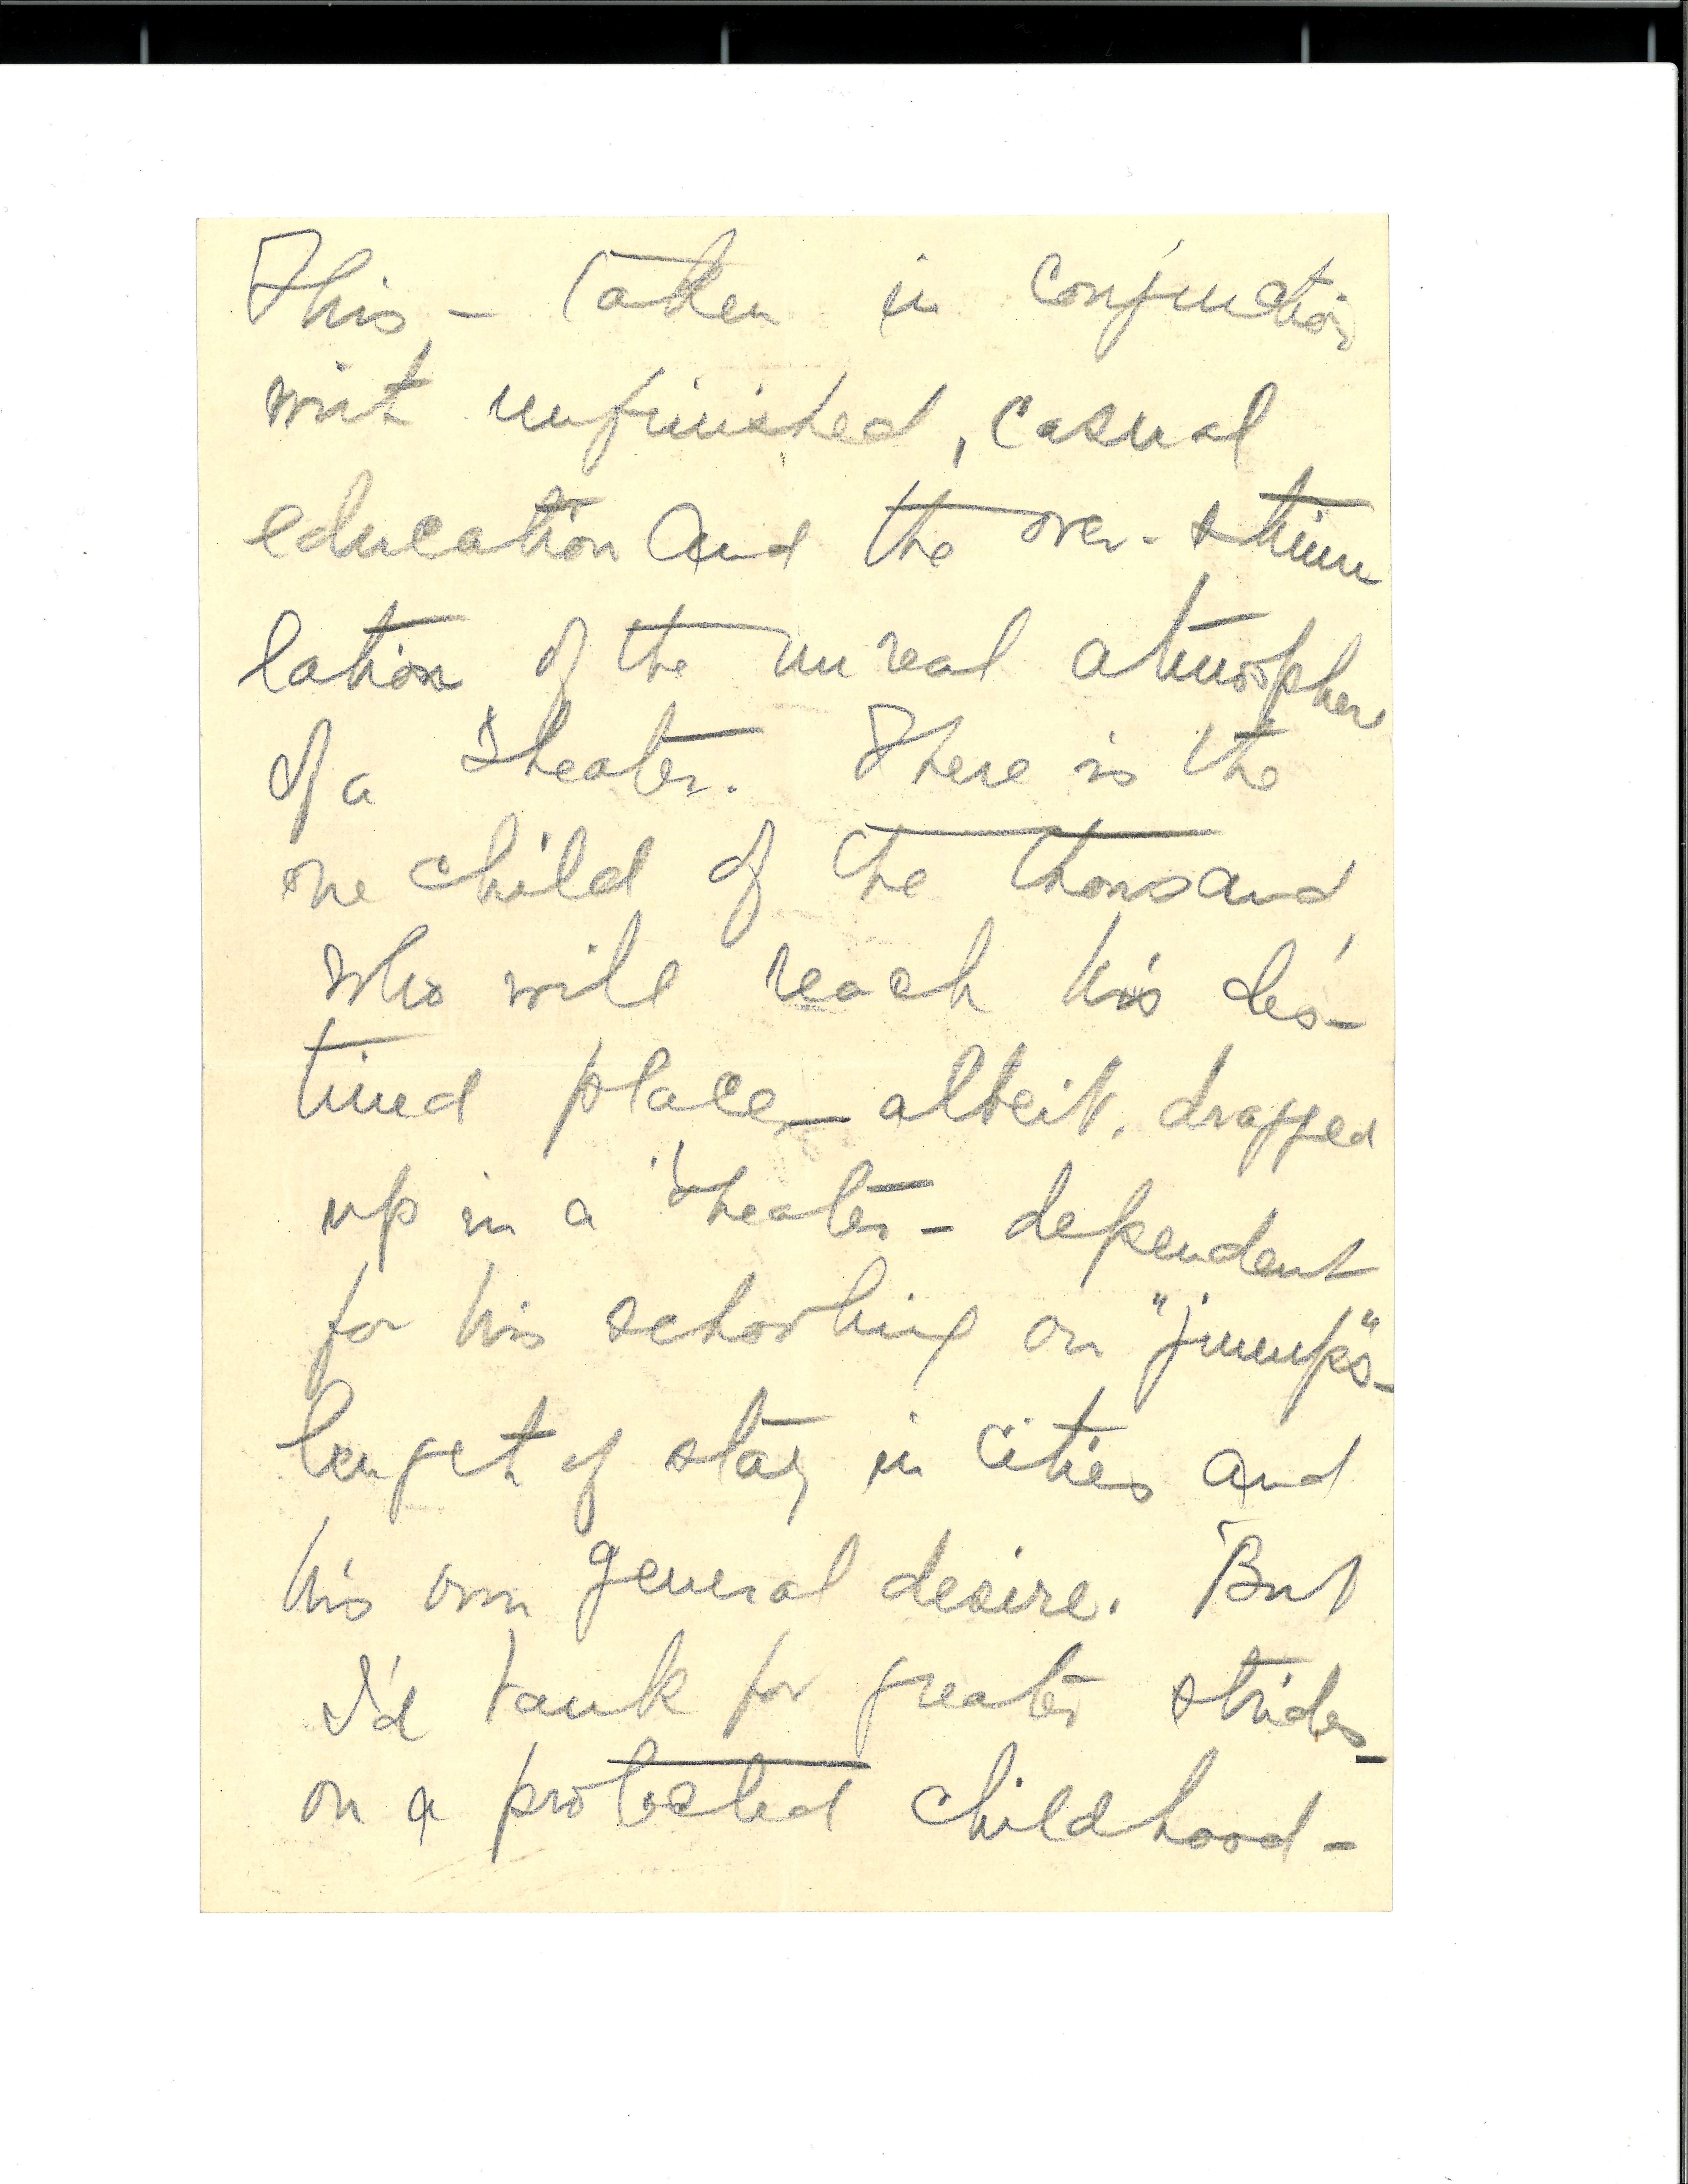 This, - taken in conjunction
with unfinished, casual
education and the over-stimu
lation of the unreal atmosphere
of a theater. There is the
one child of the thousand,
who will reach his des-
tined place - albeit, dragged
up in a theater - dependent
for his schooling on "jumps" -
length of stay in cities and
his own general desire. But
I'd bank for greater strides -
on a protected childhood -